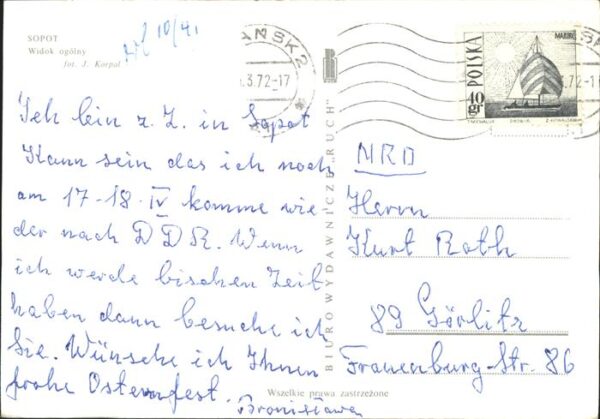 SOPOT
Widok ogólny
fot. J. Korpal
10/41
GDAŃSK 2
.3.72-17
POLSKA
40 gr
Ich bin z. Z. in Sopot
Kann sein das ich noch
am 17-18. IV komme wie
der nach DDR. Wenn
ich werde bischen Zeit
haben dann besuche ich
Sie. Wünsche ich Ihnen
frohe Osternfest.
Bronisława
BIURO WYDAWNICZE „RUCH"
NRD
Herrn
Kurt Roth
89 Görlitz
Frauenburg-Str. 86
Wszelkie prawa zastrzeżone